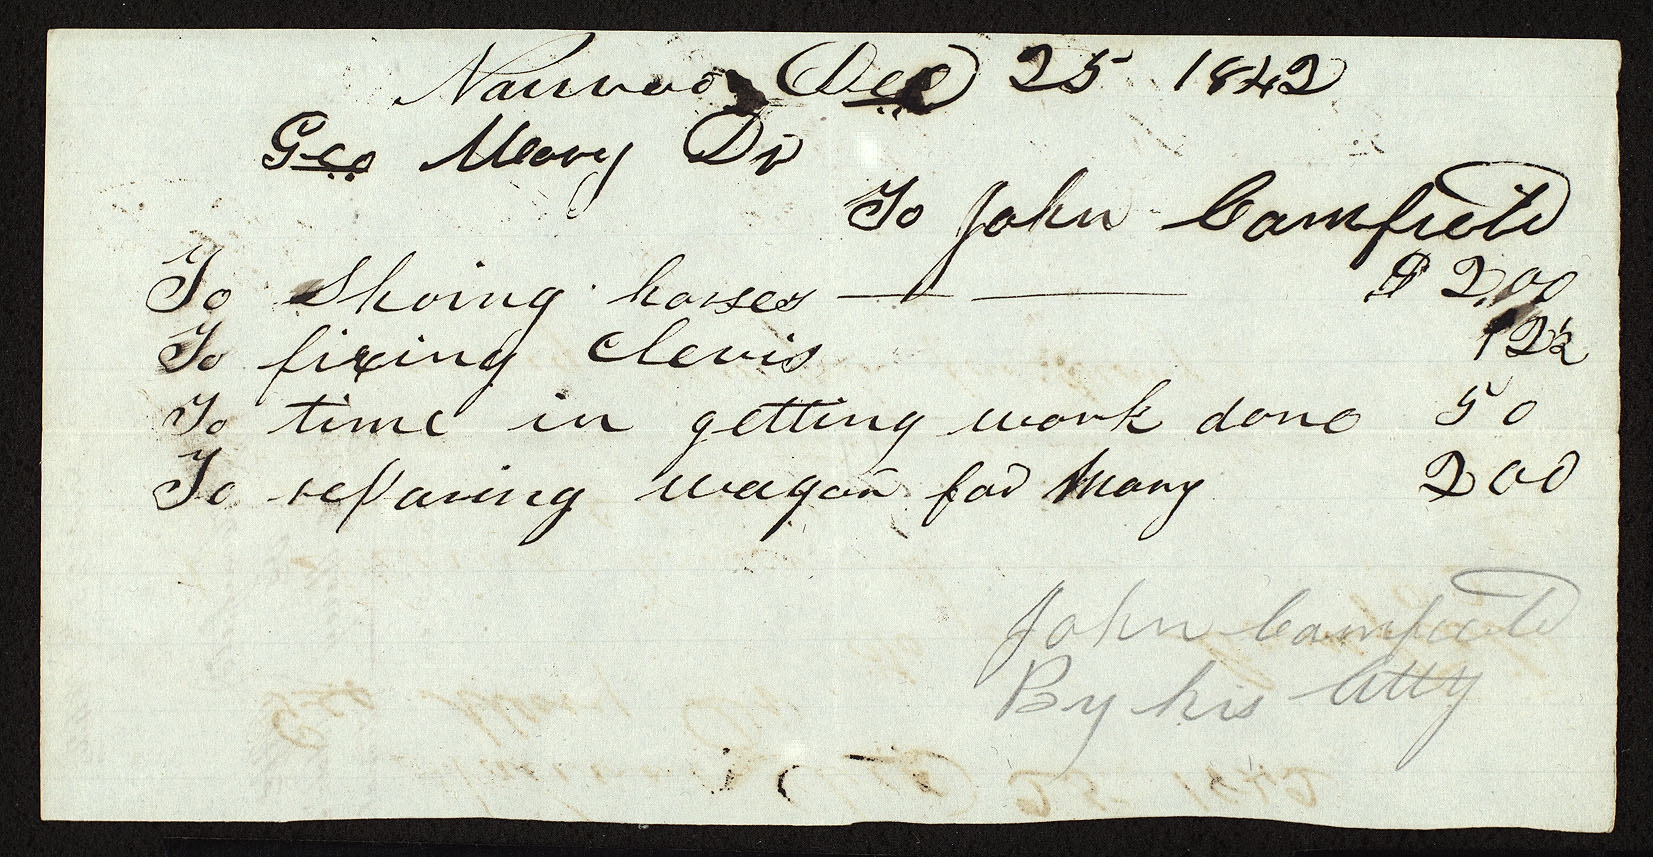 Nauvoo Dec 25 1842
Geo Mory Dr
To John Camfield
To Shoing horses $ 2,00
To fixing Clevis 12½
To time in getting work done 50
To reparing wagon for Mory 2 00
John Camfield
By his Atty